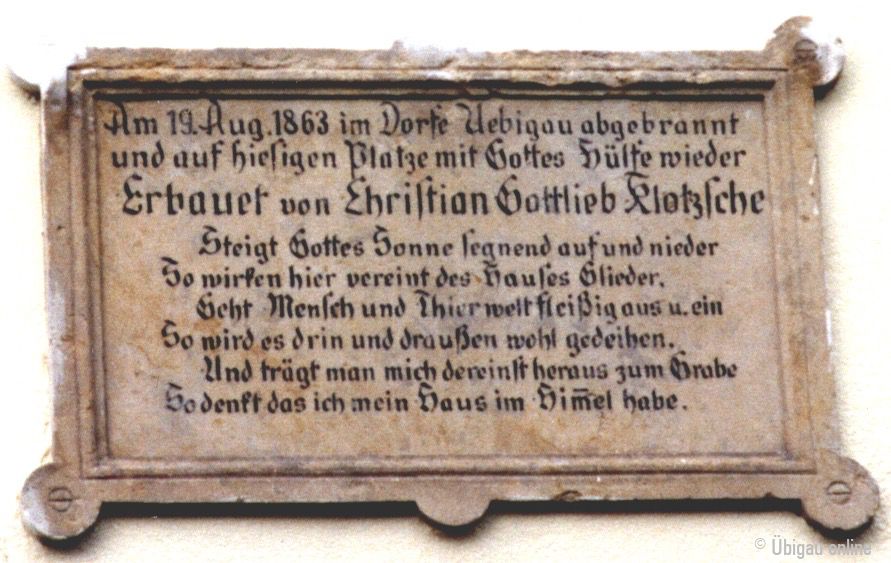 Am 19. Aug. 1863 im Dorfe Uebigau abgebrannt
und auf hiesigen Platze mit Gottes Hülfe wieder
Erbauet von Christian Gottlieb Klotzsche
Steigt Gottes Sonne segnend auf und nieder
So wirken hier vereint des Hauses Glieder.
Geht Mensch und Thierwelt fleißig aus u. ein
So wird es drin und draußen wohl gedeihen.
Und trägt man mich dereinst heraus zum Grabe
So denkt das ich mein Haus im Him̅el habe.
© Übigau online